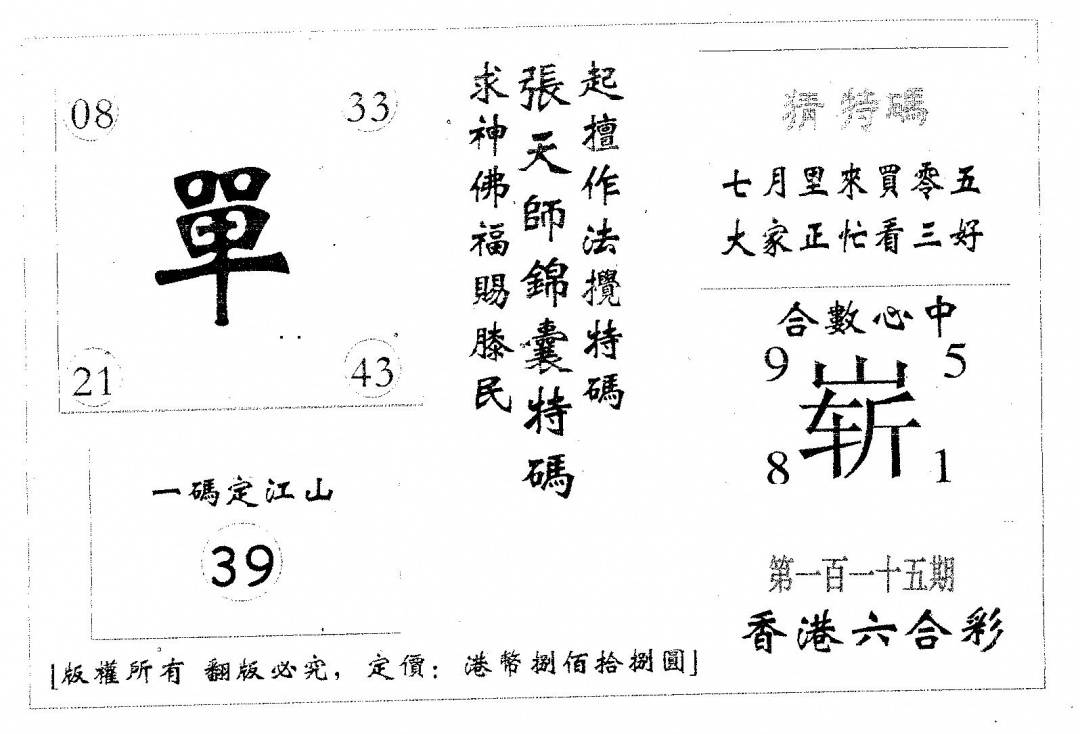 08
33
單
21
43
一碼定江山
39
起擅作法攪特碼
張天師錦囊特碼
求神佛福賜膝民
猜特碼
七月里來買零五
大家正忙看三好
合數必中
9
5
崭
8
1
第一百一十五期
香港六合彩
[版權所有 翻版必究, 定價: 港幣捌佰拾捌圓]